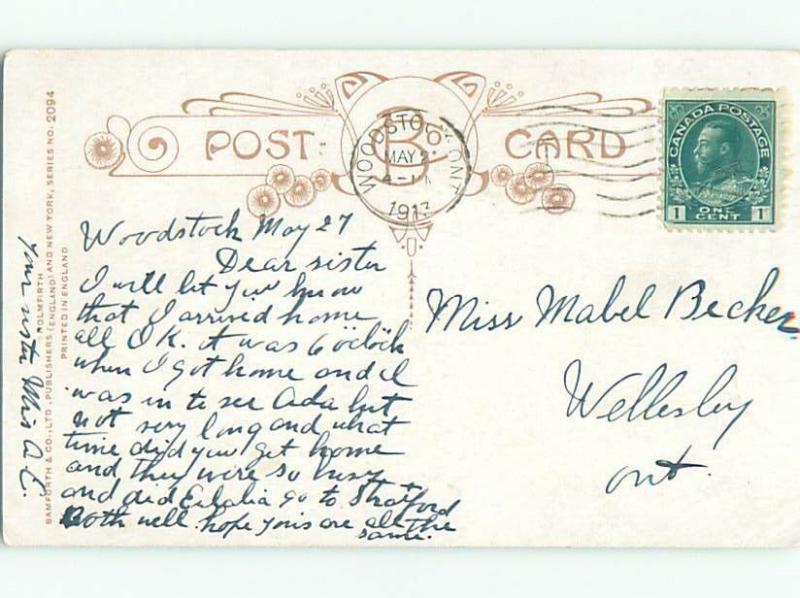 POST CARD
B
WOODSTOCK ONT
MAY 2
191
CANADA POSTAGE
1 ONE CENT 1
Woodstock May 27
Dear sister
I will let you know
that I arrived home
all O K. it was 6 o'clock
when I got home and I
was in to see Ada but
not very long and what
time did you get home
and they were so busy
and did Eulalia go to Stratford
Both well. hope yous are all the
same.
Your sister Mrs A. E.
Miss Mabel Becker
Wellesley
Ont.
BAMFORTH & CO., LTD., PUBLISHERS (ENGLAND) AND NEW YORK, SERIES NO. 2094
HOLMFIRTH
PRINTED IN ENGLAND